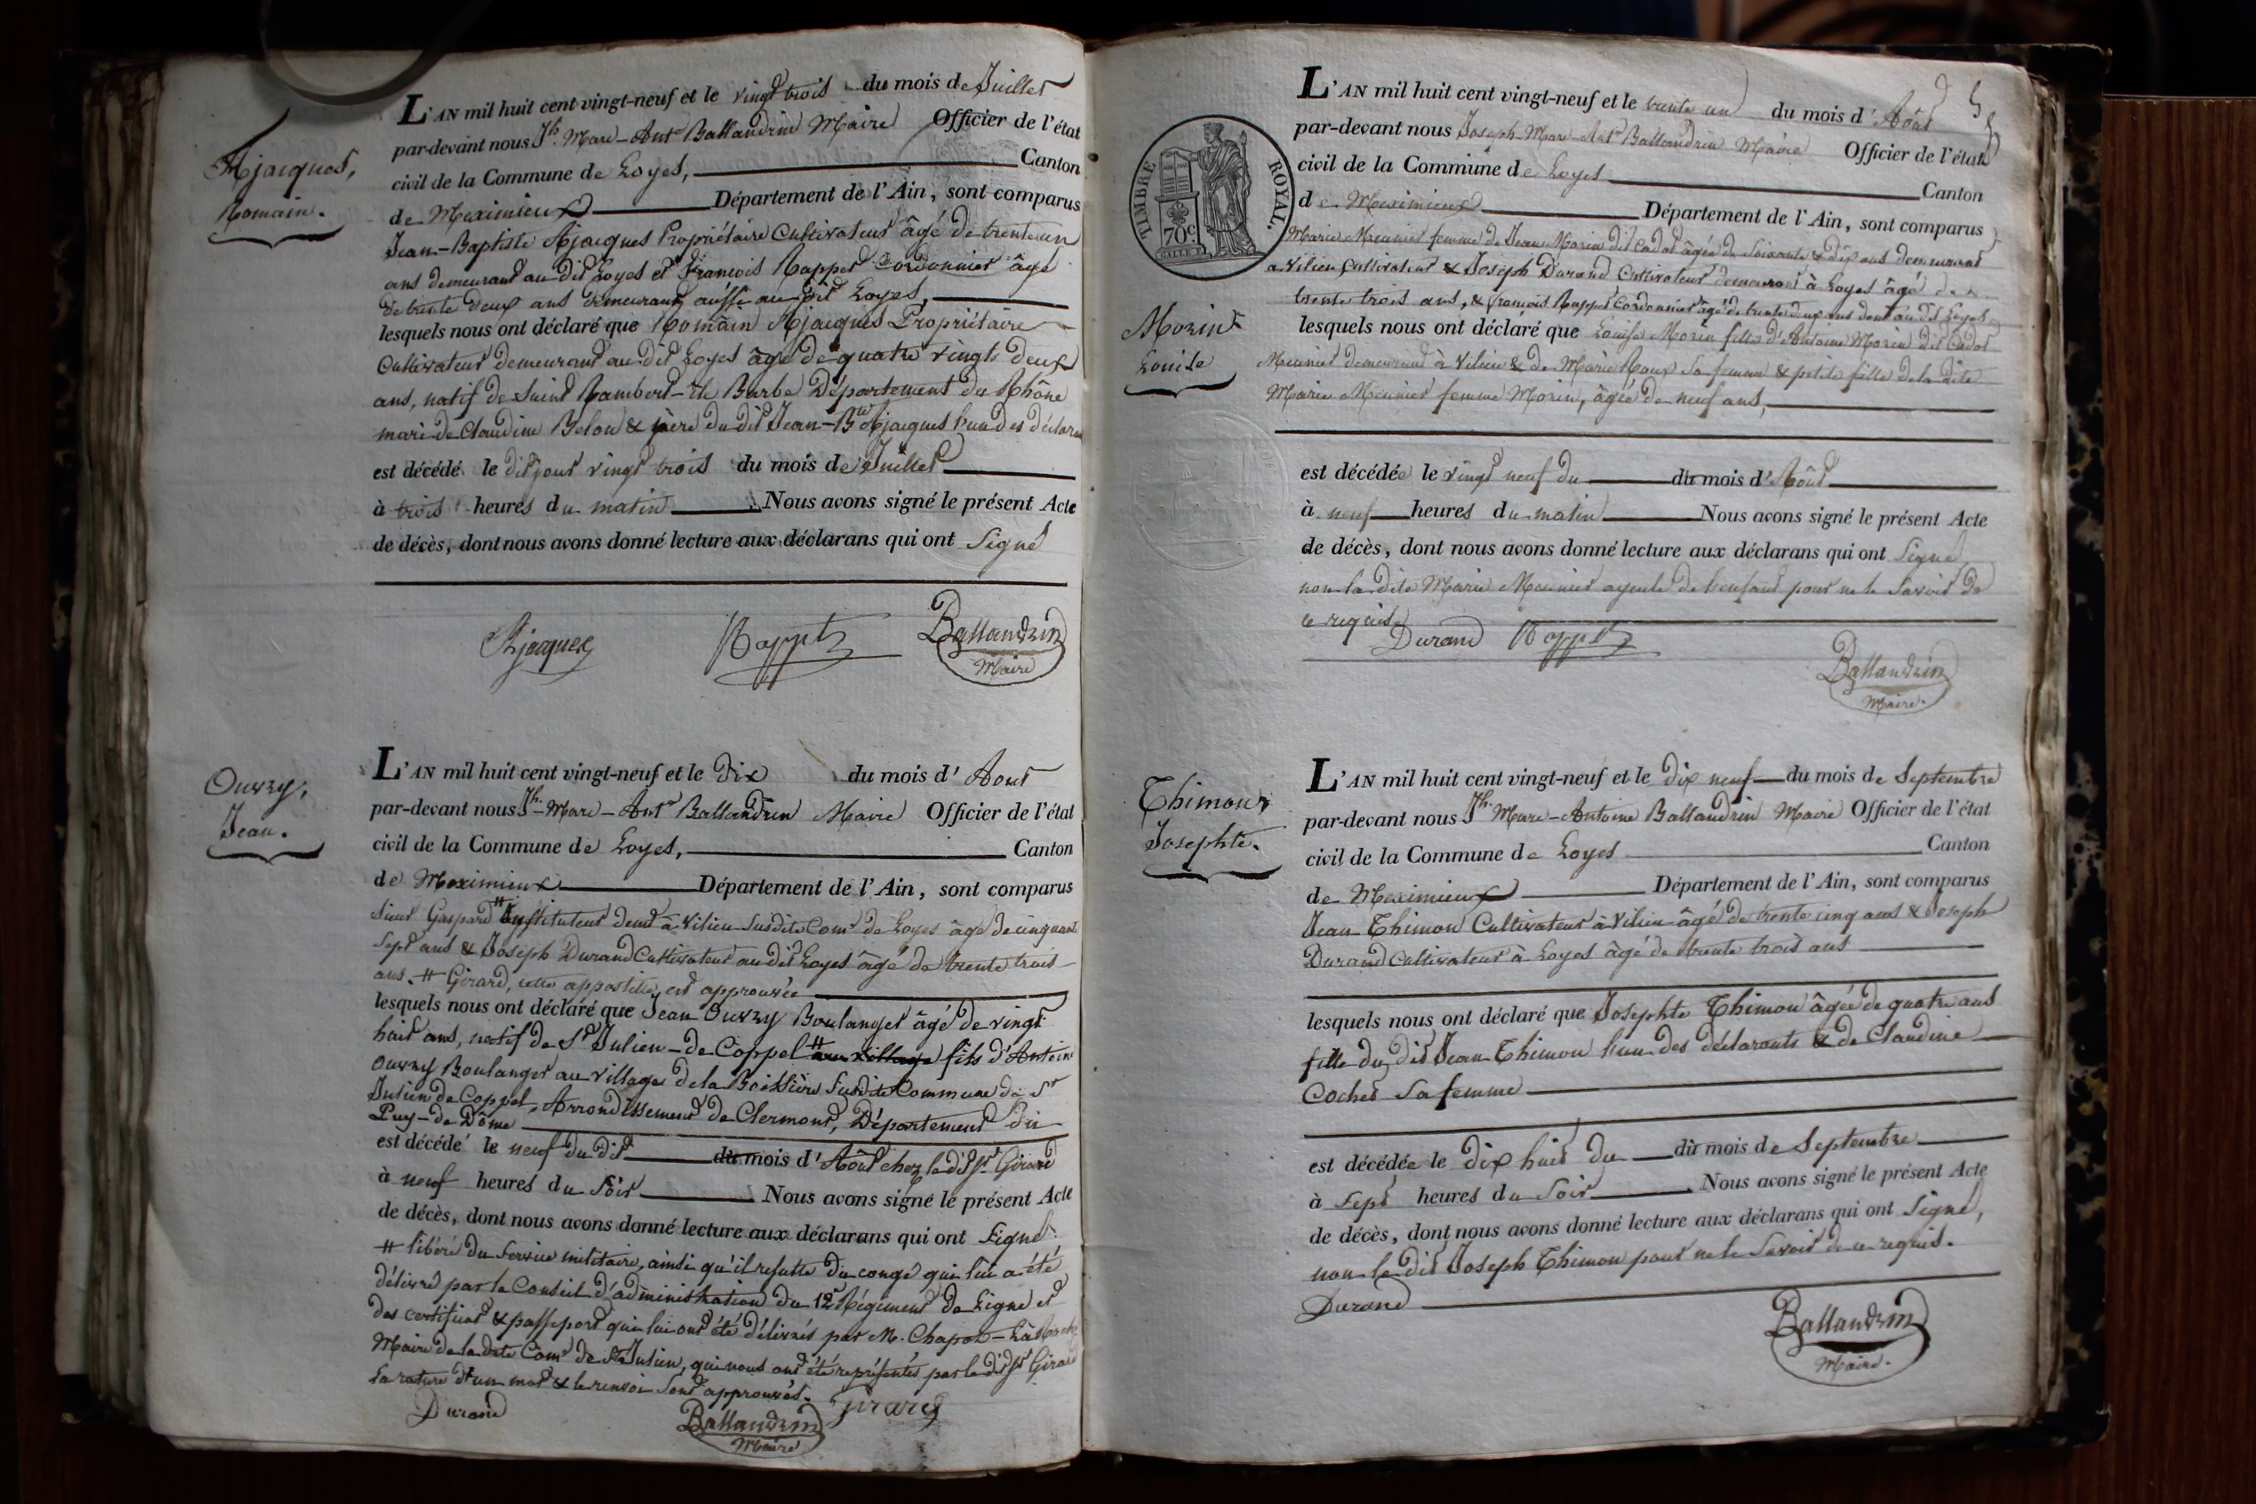 Ajacques,
Romain.
L'AN mil huit cent vingt-neuf et le vingt trois du mois de Juillet
par-devant nous Jh. Marc-Ant.e Ballandrin Maire Officier de l'état
civil de la Commune de Loyes, Canton
de Meximieux Département de l'Ain, sont comparus
Jean-Baptiste Ajacques Propriétaire Cultivateur âgé de trente un
ans demeurant au dit Loyes et François Rappet Cordonnier âgé
de trente deux ans demeurant aussi au dit Loyes,
lesquels nous ont déclaré que Romain Ajacques Propriétaire
Cultivateur demeurant au dit Loyes âgé de quatre vingts deux
ans, natif de Saint Rambert-Ile Barbe Département du Rhône
mari de Claudine Belon & père du dit Jean-Bte Ajacques l'un des déclarans
est décédé le dit jour vingt trois du mois de Juillet
à trois heures du matin Nous avons signé le présent Acte
de décès, dont nous avons donné lecture aux déclarans qui ont Signé
Ajacques Rappet Ballandrin
Maire
Ouvry,
Jean.
L'AN mil huit cent vingt-neuf et le dix du mois d'Aout
par-devant nous Jh.-Marc-Ant.e Ballandrin Maire Officier de l'état
civil de la Commune de Loyes, Canton
de Meximieux Département de l'Ain, sont comparus
Sieur Gaspard # Instituteur demt à Vilieu susdite Com.e de Loyes âgé de cinquante
sept ans & Joseph Durand Cultivateur au dit Loyes âgé de trente trois
ans. # Girard, cette appostille est approuvée
lesquels nous ont déclaré que Jean Ouvry Boulanger âgé de vingt
huit ans, natif de St Julien-de-Coppel # fils d'Antoine
Ouvry Boulanger au village de la Boissière susdite Commune de St
Julien de Coppel, Arrondissement de Clermont, Département du
Puy-de-Dôme
est décédé le neuf du dit du mois d'Aôut chez le dit Sr. Girard
à neuf heures du soir Nous avons signé le présent Acte
de décès, dont nous avons donné lecture aux déclarans qui ont Signé.
# libéré du service militaire, ainsi qu'il résulte du congé qui lui a été
délivré par le Conseil d'administration du 12e Régiment de Ligne et
des certificat & passeport qui lui ont été délivrés par M. Chapot-La
Maire de la dite Com.e de St Julien, qui nous ont été représentés par le dit Sr Girard
La rature d'un mot & le renvoi sont approuvés.
Durand Ballandrin Girard
Maire
TIMBRE ROYAL.
70c
Morin
Louise
L'AN mil huit cent vingt-neuf et le trente un du mois d'Aôut
par-devant nous Joseph-Marc-Ant.e Ballandrin Maire Officier de l'état
civil de la Commune de Loyes Canton
de Meximieux Département de l'Ain, sont comparus
Marie Meunier femme de Jean Morin dit Cadot âgée de soixante & dix ans demeurant
à Vilieu Cultivateur & Joseph Durand Cultivateur demeurant à Loyes âgé de
trente trois ans, & françois Rappet Cordonnier âgé de trente deux ans demt au dit Loyes
lesquels nous ont déclaré que Louise Morin fille d'Antoine Morin dit Cadot
Meunier demeurant à Vilieu & de Marie Roux sa femme & petite fille de la dite
Marie Meunier femme Morin, âgée de neuf ans,
est décédée le vingt neuf du du mois d'Aôut
à neuf heures du matin Nous avons signé le présent Acte
de décès, dont nous avons donné lecture aux déclarans qui ont Signé
non la dite Marie Meunier ayeule de l'enfant pour ne le savoir de
ce requise
Durand Rappet
Ballandrin
Maire.
Thimon
Josephte.
L'AN mil huit cent vingt-neuf et le dix neuf du mois de Septembre
par-devant nous Jh. Marc-Antoine Ballandrin Maire Officier de l'état
civil de la Commune de Loyes Canton
de Meximieux Département de l'Ain, sont comparus
Jean Thimon Cultivateur à Vilieu âgé de trente cinq ans & Joseph
Durand Cultivateur à Loyes âgé de trente trois ans
lesquels nous ont déclaré que Josephte Thimon âgée de quatre ans
fille du dit Jean Thimon l'un des déclarants & de Claudine
Cochet sa femme
est décédée le dix huit du du mois de Septembre
à sept heures du soir Nous avons signé le présent Acte
de décès, dont nous avons donné lecture aux déclarans qui ont Signé,
non le dit Joseph Thimon pour ne le savoir de ce requis.
Durand
Ballandrin
Maire.